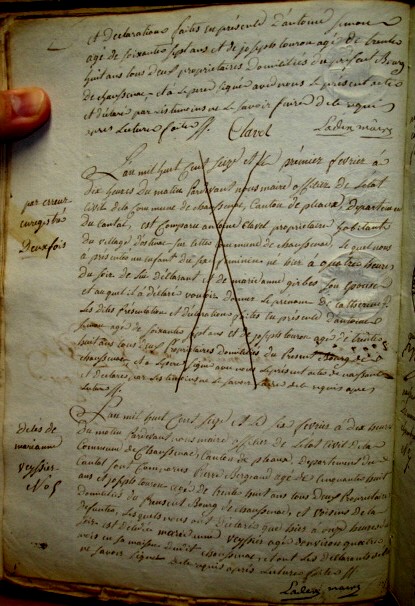 et déclaration faites en présence d'antoine simon
agé de soixante sept ans et de joseph touron agé de trente
huit ans tous deux propriétaires domiciliés du présent Bourg
de chaussenac, et a le pred signé avec nous le présent acte
et déclaré par les témoins ne le savoir faire de ce requis
après Lecture faite ff. Clavel Ladex maire
L'an mil huit Cent seize et le premier février à
par erreur
enregistré
Deux fois
dix heures du matin Pardevant nous maire officier de l'état
Civil de la Commune de chaussenac, Canton de pleaux, Département
du Cantal, est Comparu antoine Clavel propriétaire habitant
du village d' sur cette commune de chaussenac, lequel nous
a présenté un enfant du sexe féminin né hier à quatre heures
du soir de lui déclarant et de marianne girbes son épouse
et auquel il a déclaré vouloir donner le prénom de catherine
Les dites Présentation et déclaration faites en présence d'antoine
simon agé de soixante sept ans et de joseph touron agé de trente
huit ans tous deux Propriétaires domiciliés du présent Bourg de
chaussenac, et a le pred signé avec nous le présent acte de naissance
et déclaré par les témoins ne le savoir faire de ce requis après
Lecture ff.
décès de
marianne
veyssier
N° 5
L'an mil huit Cent seize et le six février à dix heures
du matin Pardevant nous maire officier de l'état Civil de la
Commune de Chaussenac, Canton de pleaux, département du
Cantal sont Comparus pierre Bergeaud agé de Cinquante huit
ans et joseph touron agé de trente huit ans tous deux Propriétaires
domiciliés du présent Bourg de chaussenac, et voisins de la
défunte, Lesquels nous ont déclaré que hier à onze heures du
soir est décédée marianne veyssier agée d'environ quatre
vis en sa maison dudit chaussenac, et ont les déclarants dit
ne savoir signer de ce requis après Lecture faite ff.
Ladex maire